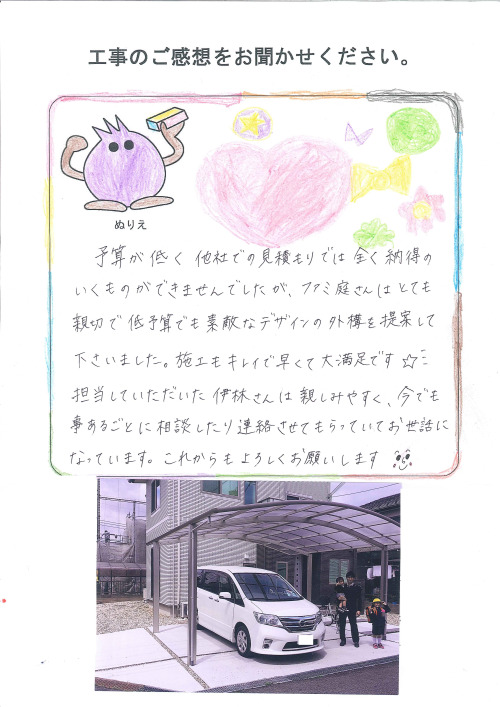 工事のご感想をお聞かせください。
ぬりえ
予算が低く他社での見積もりでは全く納得の
いくものができませんでしたが、ファミ庭さんはとても
親切で低予算でも素敵なデザインの外構を提案して
下さいました。施工もキレイで早くて大満足です☆
担当していただいた伊林さんは親しみやすく、今でも
事あるごとに相談したり連絡させてもらっていてお世話に
なっています。これからもよろしくお願いします